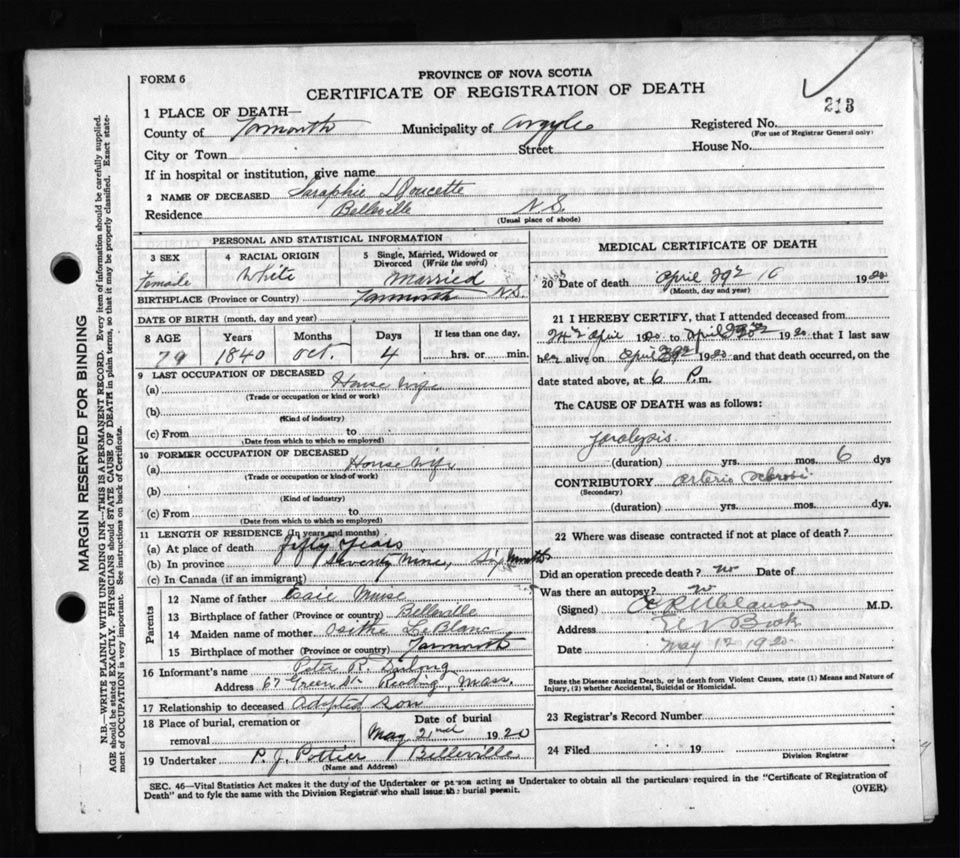 PROVINCE OF NOVA SCOTIA
FORM 6
CERTIFICATE OF REGISTRATION OF DEATH
213
1 PLACE OF DEATH—
County of Yarmouth Municipality of Argyle Registered No.
(For use of Registrar General only)
City or Town Street House No.
If in hospital or institution, give name
2 NAME OF DECEASED Saraphie Doucette
Residence Belleville N.S.
(Usual place of abode)
PERSONAL AND STATISTICAL INFORMATION
3 SEX
Female
4 RACIAL ORIGIN
White
5 Single, Married, Widowed or Divorced (Write the word)
Married
BIRTHPLACE (Province or Country) Yarmouth N.S.
DATE OF BIRTH (month, day and year)
8 AGE Years Months Days If less than one day,
79 1840 Oct. 4 hrs. or min.
9 LAST OCCUPATION OF DECEASED
(a) House Wife
(Trade or occupation or kind or work)
(b)
(Kind of industry)
(c) From to
(Date from which to which so employed)
10 FORMER OCCUPATION OF DECEASED
(a) House Wife
(Trade or occupation or kind of work)
(b)
(Kind of industry)
(c) From to
(Date from which to which so employed)
11 LENGTH OF RESIDENCE (In years and months)
(a) At place of death fifty years
(b) In province seventy nine, Six Months
(c) In Canada (if an immigrant)
Parents
12 Name of father Muise
13 Birthplace of father (Province or country) Belleville
14 Maiden name of mother Osithe LeBlanc
15 Birthplace of mother (Province or country) Yarmouth
16 Informant's name Peter R.
Address 67 Green St. Reading Mass.
17 Relationship to deceased Adopted Son
18 Place of burial, cremation or removal
Date of burial
May 2nd 1920
19 Undertaker P. J. Pottier Belleville
(Name and Address)
MEDICAL CERTIFICATE OF DEATH
20 Date of death April 1920
(Month, day and year)
21 I HEREBY CERTIFY, that I attended deceased from
April 1920 to April 1920 that I last saw
her alive on April 1920 and that death occurred, on the
date stated above, at 6 P.m.
The CAUSE OF DEATH was as follows:
(duration) yrs. mos. 6 dys
CONTRIBUTORY
(Secondary)
(duration) yrs. mos. dys
22 Where was disease contracted if not at place of death?
Did an operation precede death? no Date of
Was there an autopsy? no
(Signed) M.D.
Address
Date May 12 1920
State the Disease causing Death, or in death from Violent Causes, state (1) Means and Nature of
Injury, (2) whether Accidental, Suicidal or Homicidal.
23 Registrar's Record Number
24 Filed 19
Division Registrar
SEC. 46—Vital Statistics Act makes it the duty of the Undertaker or person acting as Undertaker to obtain all the particulars required in the "Certificate of Registration of
Death" and to fyle the same with the Division Registrar who shall issue the burial permit.
(OVER)
MARGIN RESERVED FOR BINDING
N.B.—WRITE PLAINLY WITH UNFADING INK—THIS IS A PERMANENT RECORD. Every item of information should be carefully supplied.
AGE should be stated EXACTLY. PHYSICIANS should STATE CAUSE OF DEATH in plain terms, so that it may be properly classified. Exact state-
ment of OCCUPATION is very important. See instructions on back of Certificate.